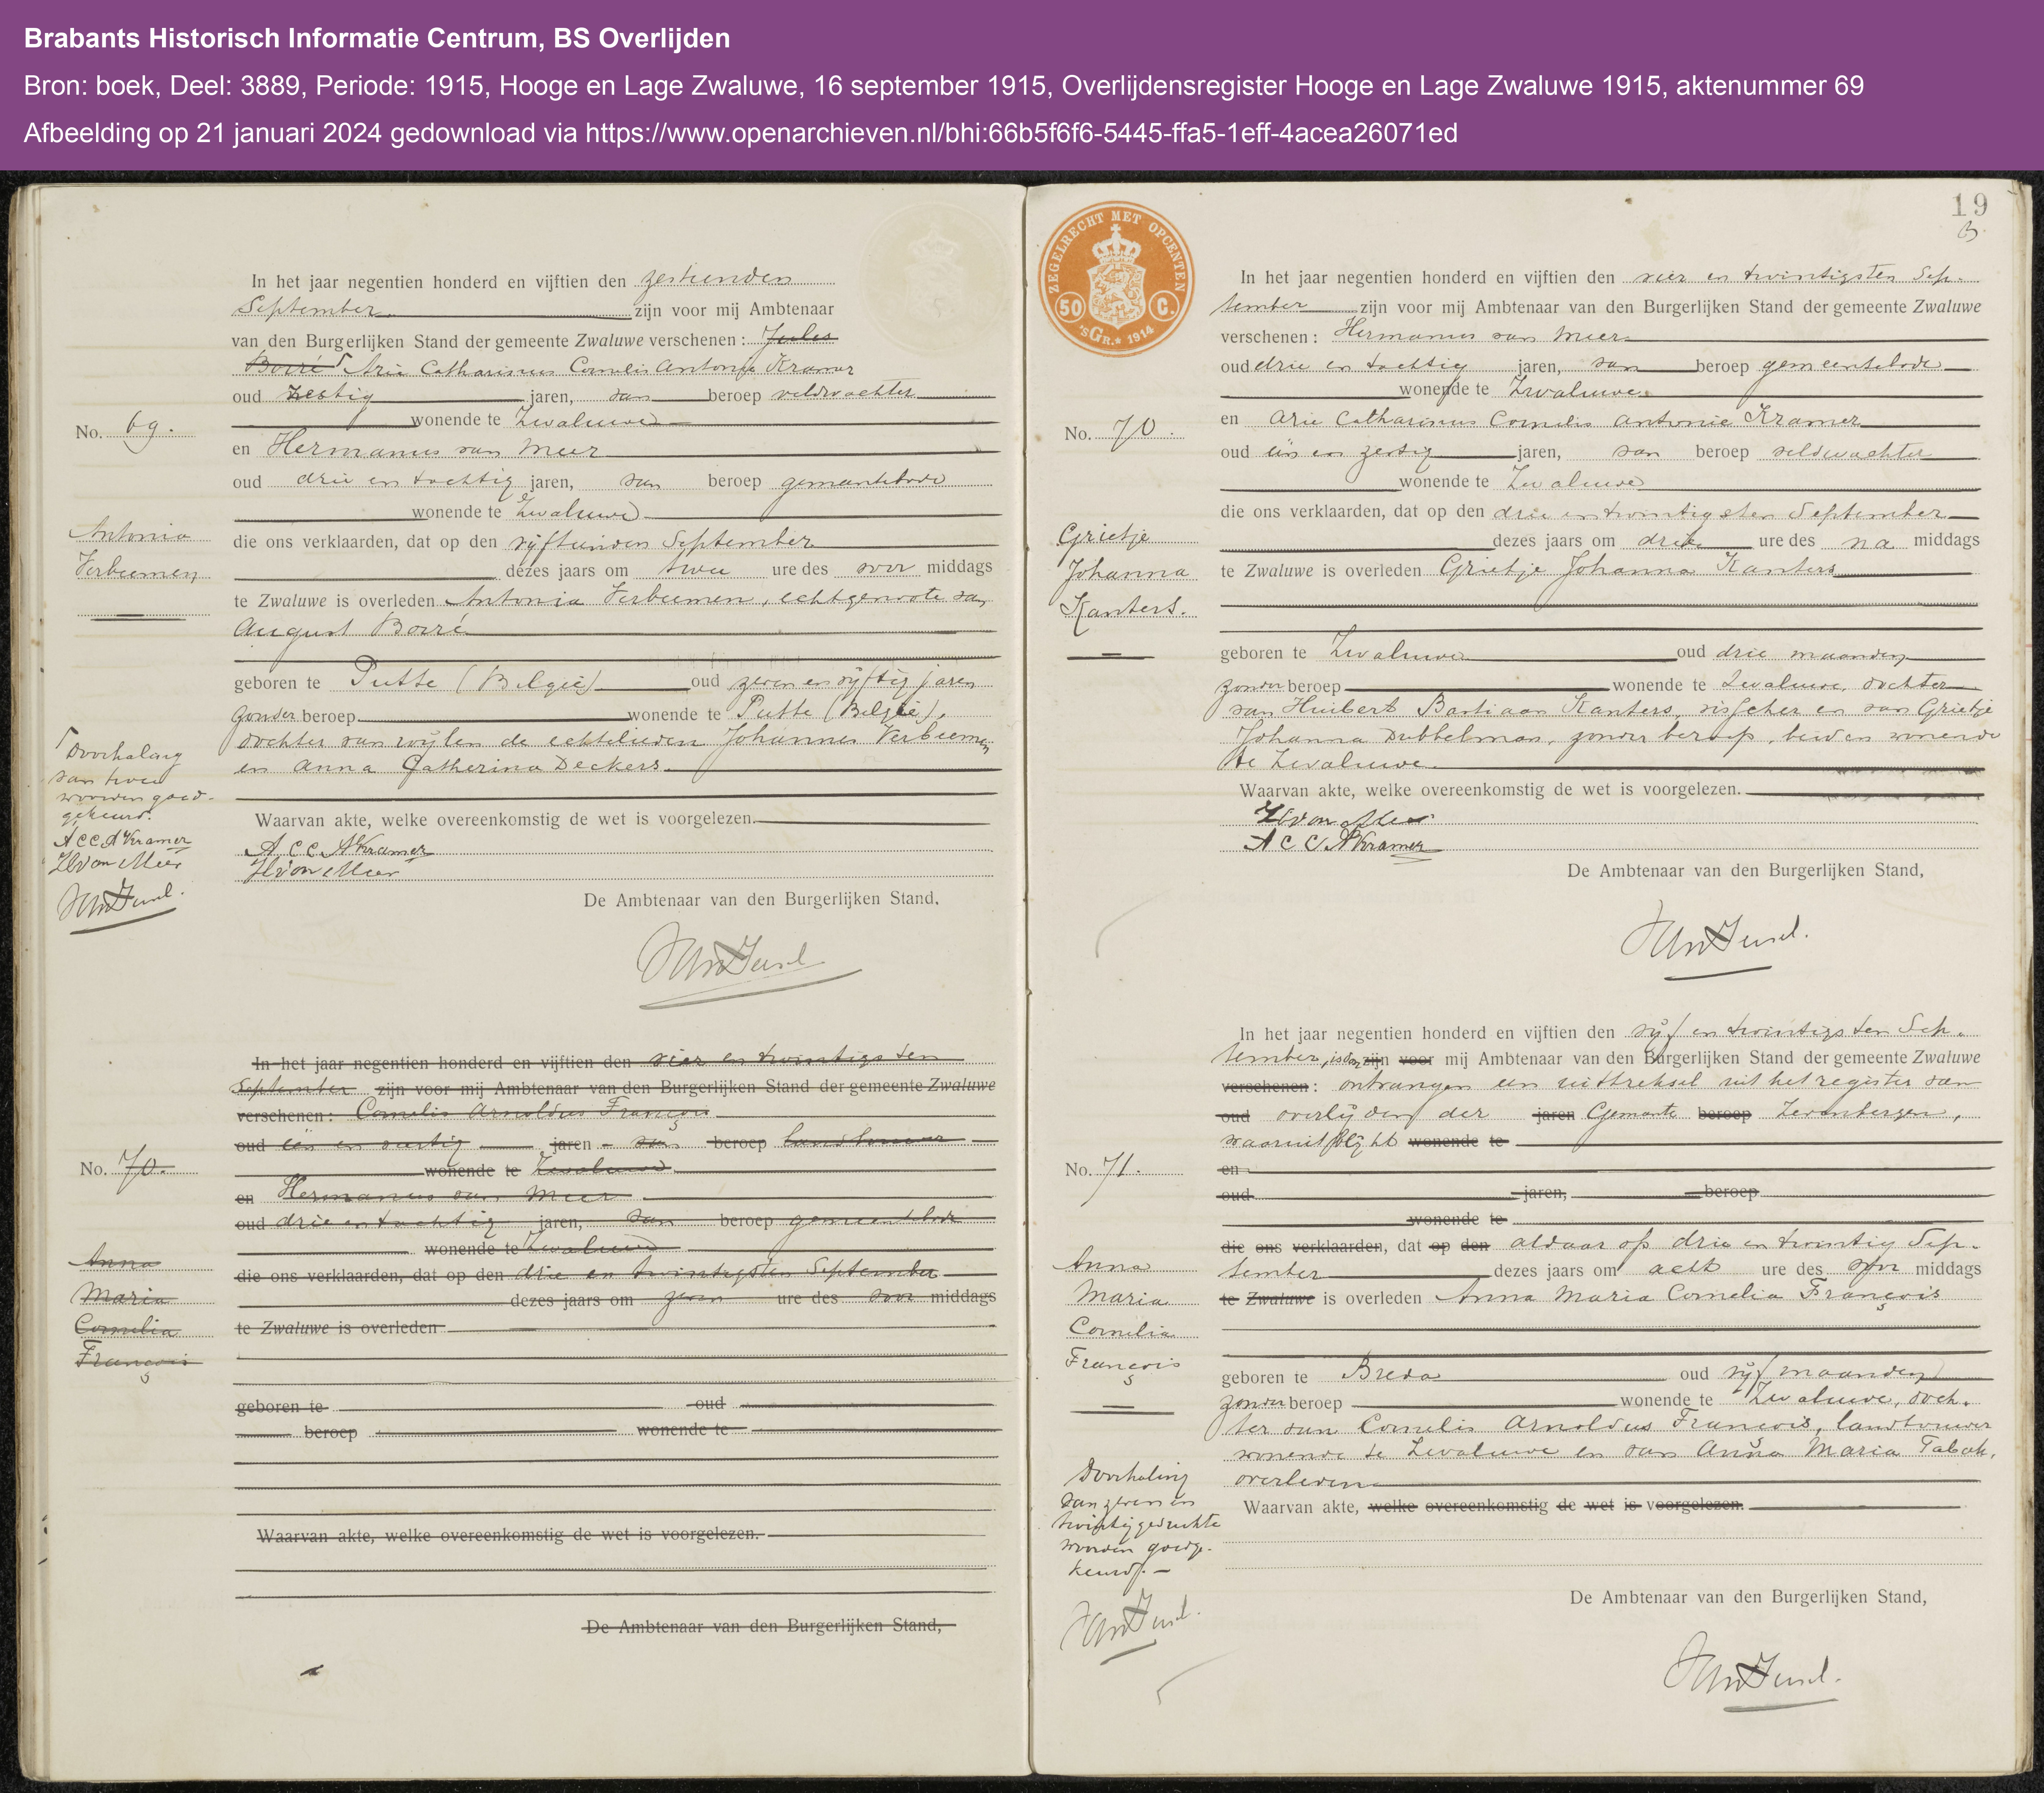 Brabants Historisch Informatie Centrum, BS Overlijden
Bron: boek, Deel: 3889, Periode: 1915, Hooge en Lage Zwaluwe, 16 september 1915, Overlijdensregister Hooge en Lage Zwaluwe 1915, aktenummer 69
Afbeelding op 21 januari 2024 gedownload via https://www.openarchieven.nl/bhi:66b5f6f6-5445-ffa5-1eff-4acea26071ed
In het jaar negentien honderd en vijftien den zestienden
September zijn voor mij Ambtenaar
van den Burgerlijken Stand der gemeente Zwaluwe verschenen: Jules
Borré Arie Catharinus Cornelis Antonie Kramer
oud zestig jaren, van beroep veldwachter
wonende te Zwaluwe
No. 69.
en Hermanus van Meer
oud drie en tachtig jaren, van beroep gemeentebode
wonende te Zwaluwe
Antonia
Verbeemen
die ons verklaarden, dat op den vijftienden September
dezes jaars om twee ure des voor middags
te Zwaluwe is overleden Antonia Verbeemen, echtgenoote van
August Borré
geboren te Putte (België) oud zeven en vijftig jaren
zonder beroep wonende te Putte (België),
dochter van wijlen de echtelieden Johannes Verbeemen
en Anna Catherina Deckers.
Doorhaling
van twee
woorden goed-
gekeurd.
A C C A Kramer
H van Meer
Waarvan akte, welke overeenkomstig de wet is voorgelezen.
A C C A Kramer
H van Meer
De Ambtenaar van den Burgerlijken Stand,
In het jaar negentien honderd en vijftien den vier en twintigsten
September zijn voor mij Ambtenaar van den Burgerlijken Stand der gemeente Zwaluwe
verschenen: Cornelis Arnoldus François
oud één en veertig jaren van beroep landbouwer
wonende te Zwaluwe
No. 70.
en Hermanus van Meer
oud drie en tachtig jaren, van beroep gemeentebode
wonende te Zwaluwe
Anna
Maria
Cornelia
François
die ons verklaarden, dat op den drie en twintigsten September
dezes jaars om zeven ure des voor middags
te Zwaluwe is overleden
geboren te oud
beroep wonende te
Waarvan akte, welke overeenkomstig de wet is voorgelezen.
De Ambtenaar van den Burgerlijken Stand,
19
ZEGELRECHT MET OPCENTEN
50 C.
'sGR. * 1914
In het jaar negentien honderd en vijftien den vier en twintigsten Sep-
tember zijn voor mij Ambtenaar van den Burgerlijken Stand der gemeente Zwaluwe
verschenen: Hermanus van Meer
oud drie en tachtig jaren, van beroep gemeentebode
wonende te Zwaluwe
No. 70.
en Arie Catharinus Cornelis Antonie Kramer
oud één en zestig jaren, van beroep veldwachter
wonende te Zwaluwe
Grietje
Johanna
Kanters.
die ons verklaarden, dat op den drie en twintigsten September
dezes jaars om drie ure des na middags
te Zwaluwe is overleden Grietje Johanna Kanters
geboren te Zwaluwe oud drie maanden
zonder beroep wonende te Zwaluwe, dochter
van Huibert Bastiaan Kanters, visscher en van Grietje
Johanna Dubbelman, zonder beroep, beiden wonende
te Zwaluwe.
Waarvan akte, welke overeenkomstig de wet is voorgelezen.
H van Meer
A C C A Kramer
De Ambtenaar van den Burgerlijken Stand,
In het jaar negentien honderd en vijftien den vijf en twintigsten Sep-
tember, is door zijn voor mij Ambtenaar van den Burgerlijken Stand der gemeente Zwaluwe
verschenen: ontvangen een uittreksel uit het register van
oud overlijden der jaren Gemeente beroep Zevenbergen,
waaruit blijkt wonende te
No. 71.
en
oud jaren, beroep
wonende te
Anna
Maria
Cornelia
François
die ons verklaarden, dat op den aldaar op drie en twintig Sep-
tember dezes jaars om acht ure des voor middags
te Zwaluwe is overleden Anna Maria Cornelia François
geboren te Breda oud vijf maanden
zonder beroep wonende te Zwaluwe, doch-
ter van Cornelis Arnoldus François, landbouwer
wonende te Zwaluwe en van Anna Maria Tabak,
overleden
Doorhaling
van zeven en
twintig gedrukte
woorden goedge-
keurd.
Waarvan akte, welke overeenkomstig de wet is voorgelezen.
De Ambtenaar van den Burgerlijken Stand,